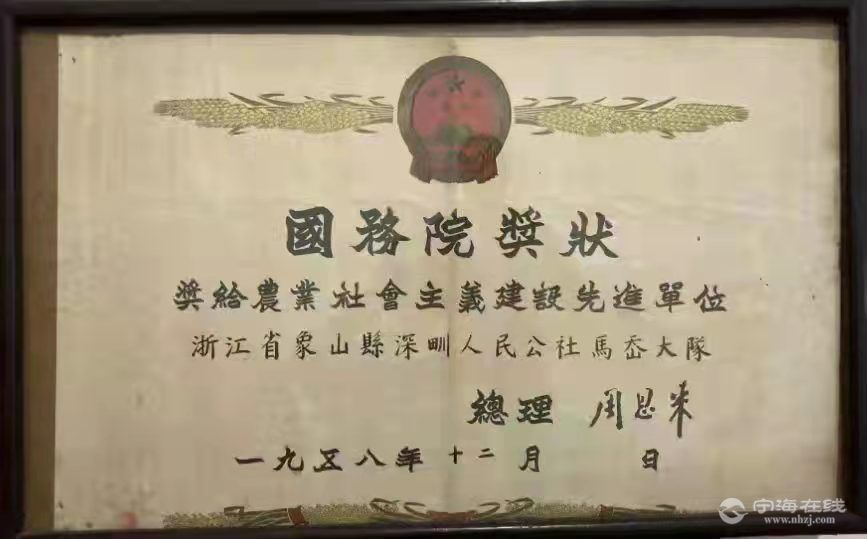 國務院奬狀
奬給農業社會主義建設先進單位
浙江省象山縣深甽人民公社馬岙大隊
總理 周恩來
一九五八年十二月 日
宁海在线
www.nhzj.com